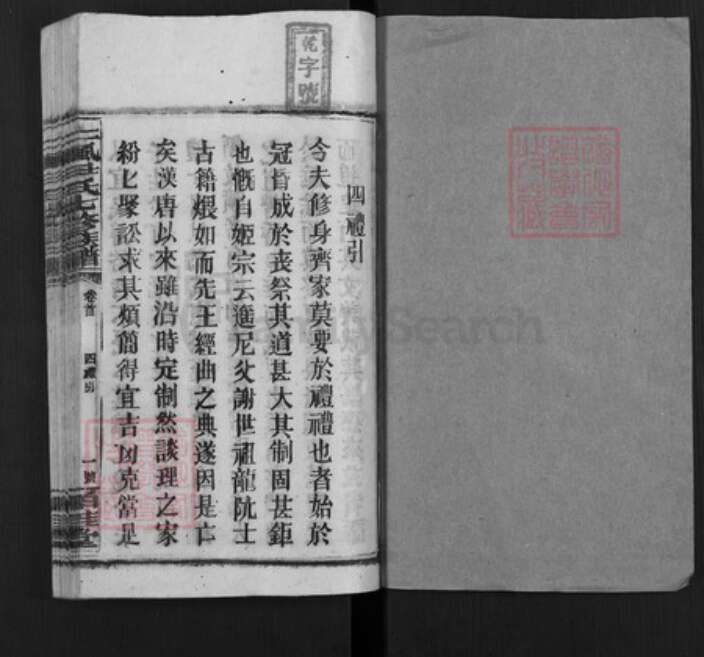 字號
四禮引
今夫修身齊家莫要於禮禮也者始於
冠昏成於喪祭其道甚大其制固甚鉅
也慨自姬宗云邈尼父謝世祖龍阬士
古籍煨如而先王經曲之典遂因是亡
矣漢唐以來雖沿時定制然談理之家
紛七聚訟求其煩簡得宜吉凶克當是
氏七修族譜
卷首
四禮引
一
號
堂
FamilySearch